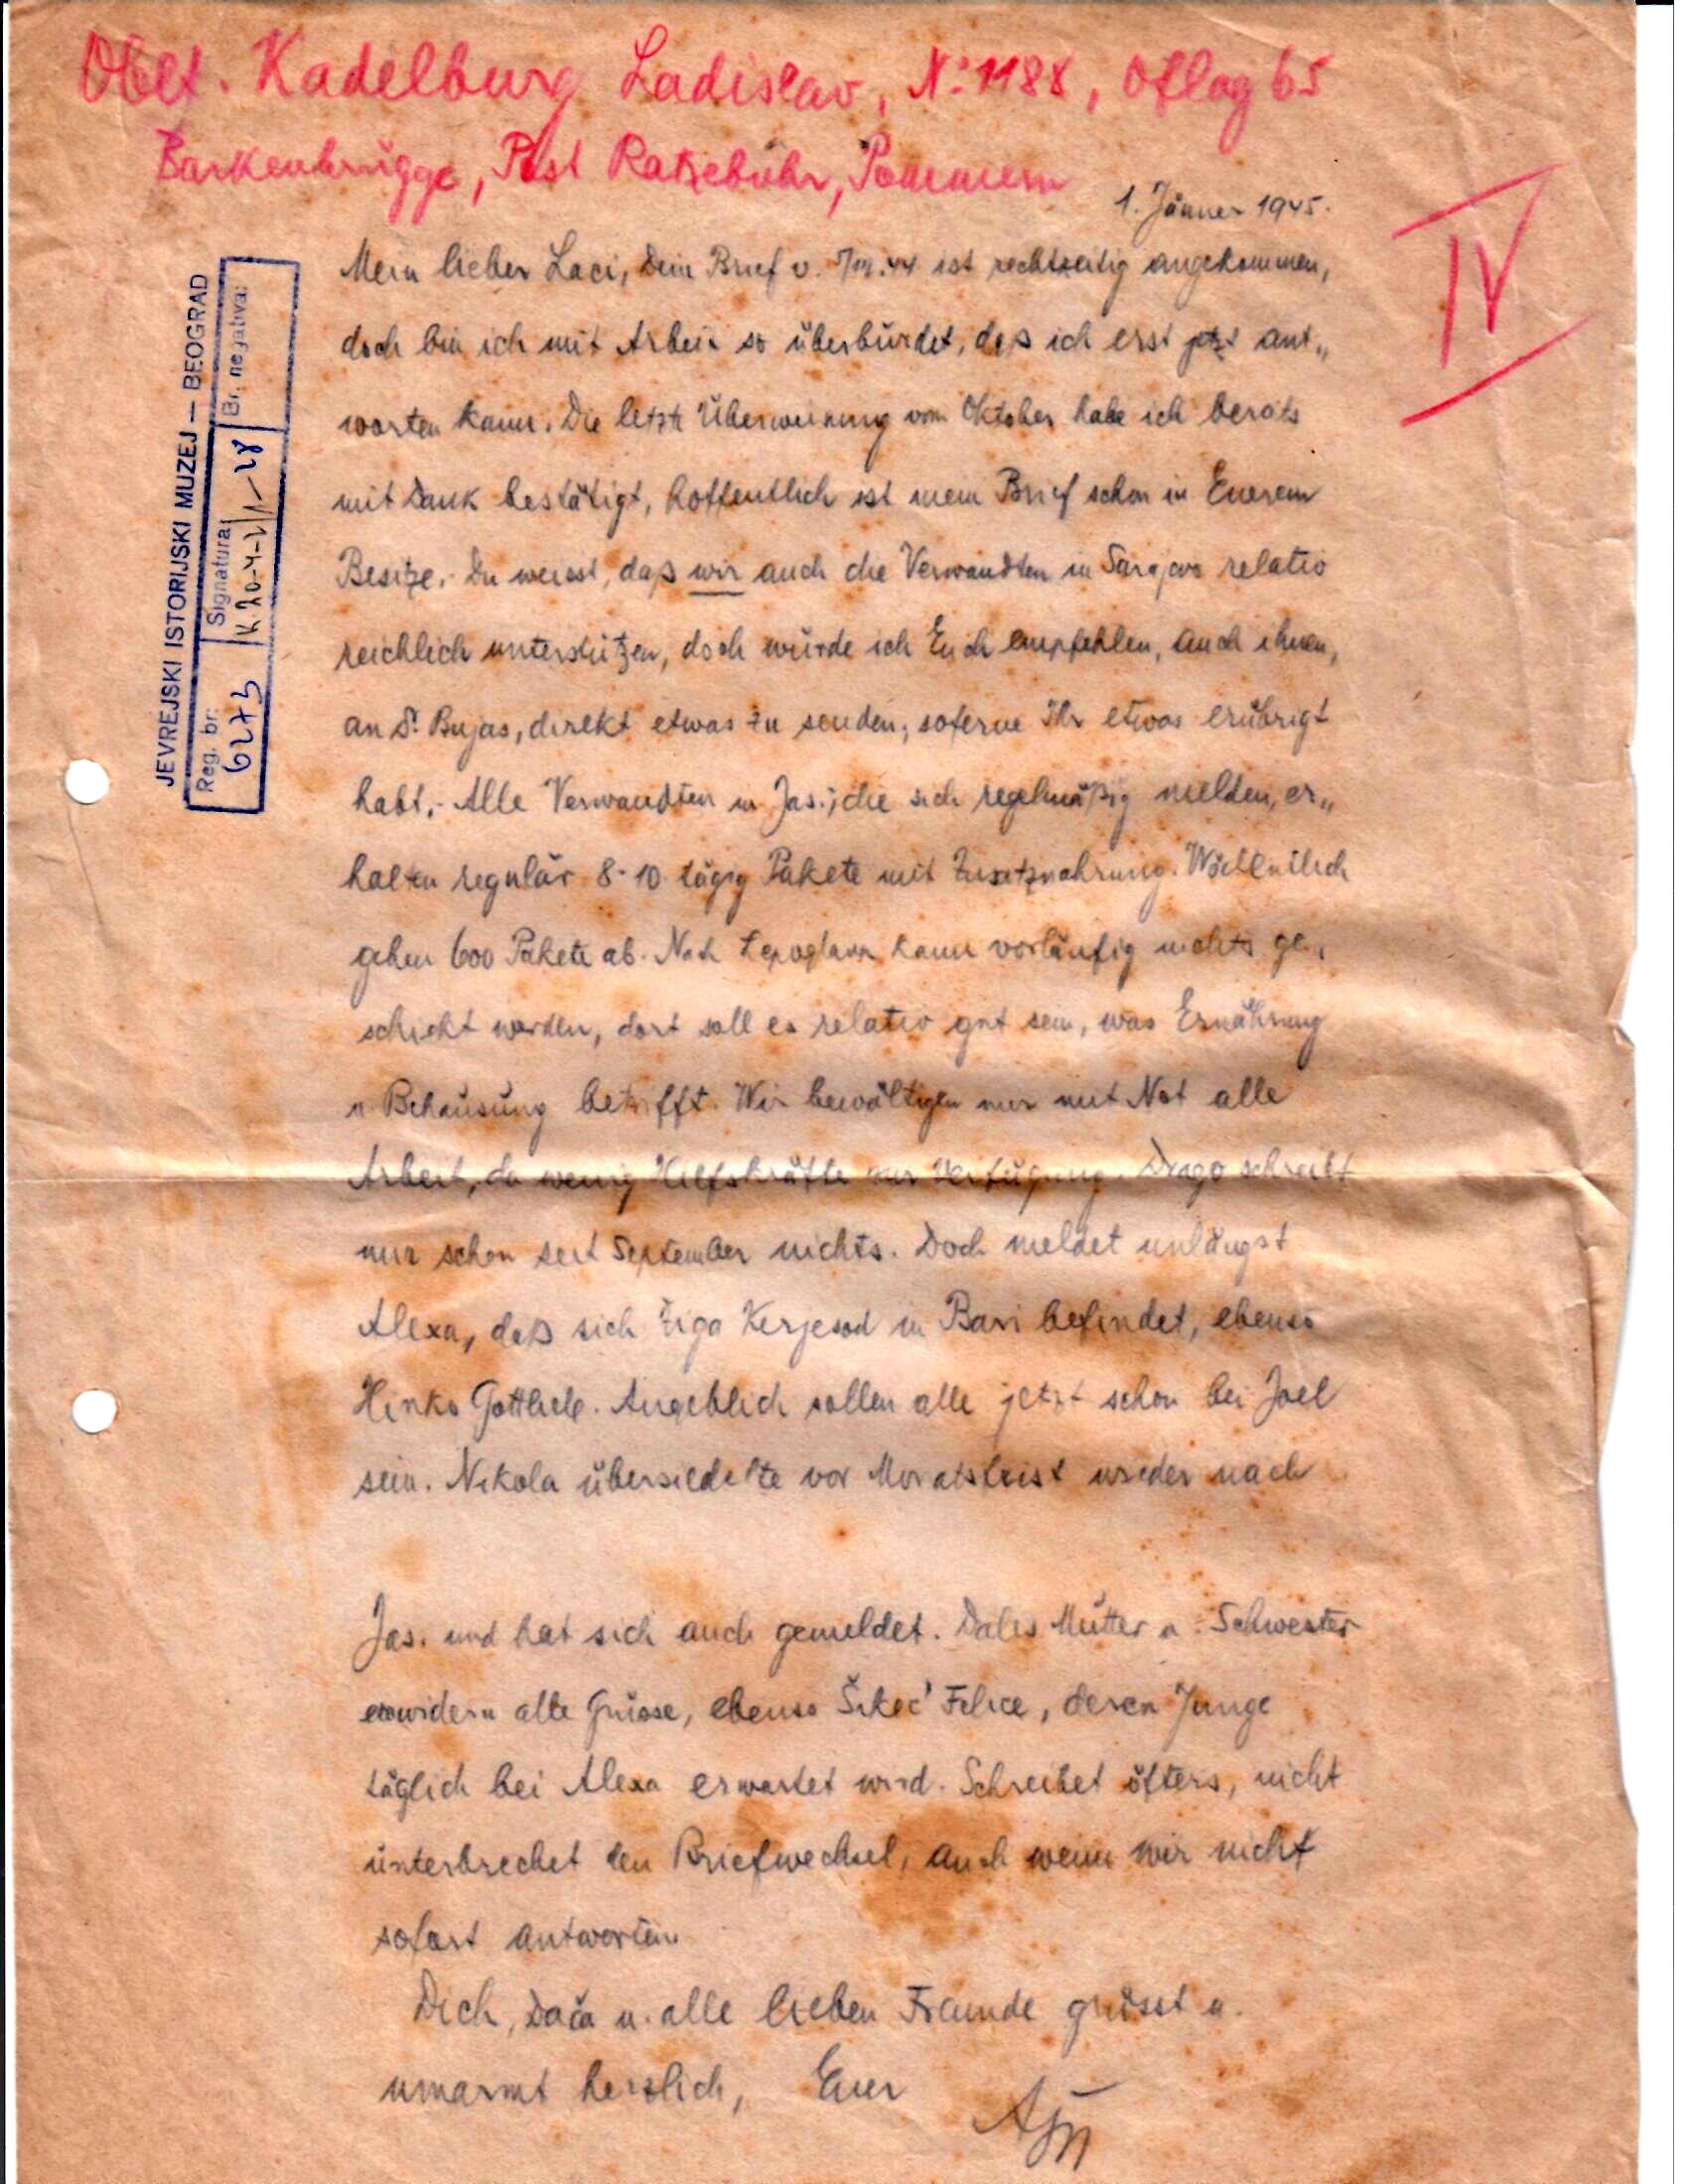 Oblt. Kadelburg Ladislav, No 1188, Oflag 65
Barkenbrügge, Post Ratzebuhr, Pommern
1. Jänner 1945.
IV
JEVREJSKI ISTORIJSKI MUZEJ — BEOGRAD
Reg. br: 6275 Signatura: K 20-4-1/1-28 Br. negativa:
Mein lieber Laci, Dein Brief v. ist rechtzeitig angekommen,
doch bin ich mit Arbeit so überbürdet, daß ich erst jetzt ant„
worten kann. Die letzte Überweisung vom Oktober habe ich bereits
mit Dank bestätigt, hoffentlich ist mein Brief schon in Euerem
Besitze.- Du weisst, daß wir auch die Verwandten in Sarajevo relativ
reichlich unterstützen, doch würde ich Euch empfehlen, auch ihnen,
an Bujas, direkt etwas zu senden, soferne Ihr etwas erübrigt
habt.- Alle Verwandten in Jas., die sich regelmäßig melden, er„
halten regulär 8-10 tägig Pakete mit Zusatznahrung. Wöchentlich
gehen 600 Pakete ab. Nach kann vorläufig nichts ge„
schickt werden, dort soll es relativ gut sein, was Ernährung
u. Behausung betrifft. Wir bewältigen nur mit Not alle
Arbeit, da wenig Hilfskräfte zur Verfügung. Drago schreibt
mir schon seit September nichts. Doch meldet unlängst
Alexa, daß sich Žiga in Bari befindet, ebenso
Hinko Gottlieb. Angeblich sollen alle jetzt schon bei Joel
sein. Nikola übersiedelte vor Monatsfrist wieder nach
Jas. und hat sich auch gemeldet. Dales Mutter u. Schwester
erwidern alle Grüsse, ebenso Felice, deren Junge
täglich bei Alexa erwartet wird. Schreibet öfters, nicht
unterbrechet den Briefwechsel, auch wenn wir nicht
sofort antworten.
Dich, Dača u. alle lieben Freunde grüsst u.
umarmt herzlich, Euer